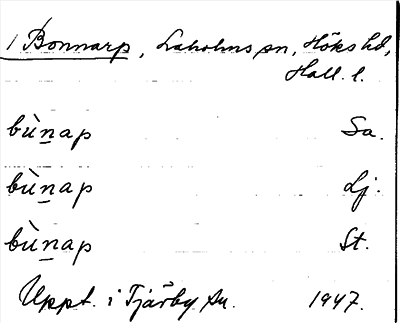 1 Bonnarp, Laholms sn, Höks hd,
Hall. l.
bùnap Sa.
bùnap Lj.
bùnap St.
Uppt. i Tjärby sn. 1947.